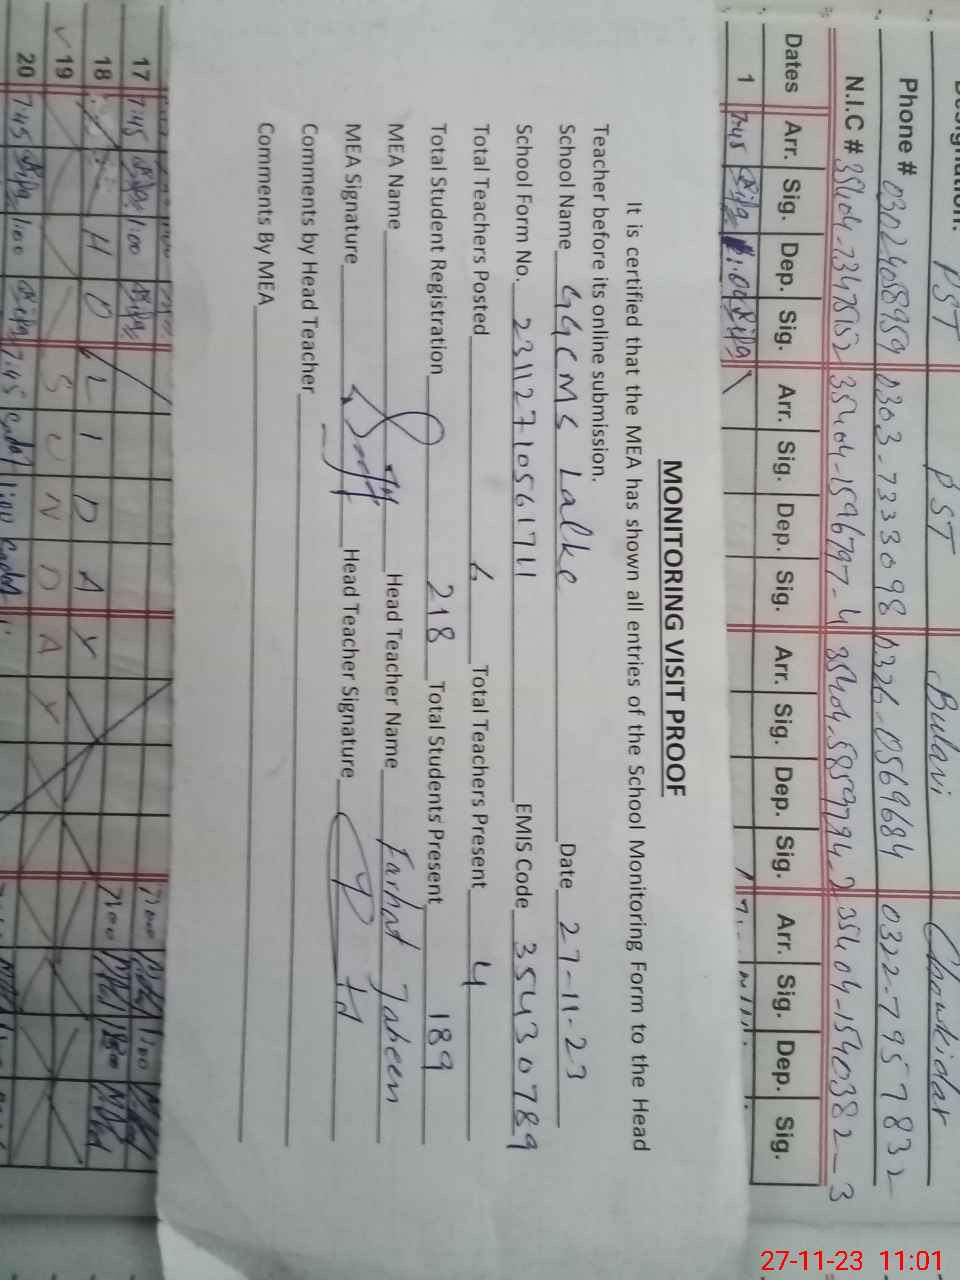 PST
PST
Bulavi
Chowkidar
Phone # 03024058959 0303-7333098 0326-0569684 0322-7957832
N.I.C # 35404-1596797-4 35404-5859794-2 35404-1540382-3
Dates Arr. Sig. Dep. Sig. Arr. Sig. Dep. Sig. Arr. Sig. Dep. Sig. Arr. Sig. Dep. Sig.
1 7:45
MONITORING VISIT PROOF
It is certified that the MEA has shown all entries of the School Monitoring Form to the Head
Teacher before its online submission.
School Name GGCMS Lalke Date 27-11-23
School Form No. 23112710561711 EMIS Code 35430789
Total Teachers Posted 6 Total Teachers Present 4
Total Student Registration 218 Total Students Present 189
MEA Name Head Teacher Name Farhat Jabeen
MEA Signature Head Teacher Signature
Comments by Head Teacher
Comments By MEA
17 7:45 1:00
18 H O L I D A Y
19 S U N D A Y
20 7:45 1:00 7:45
27-11-23 11:01